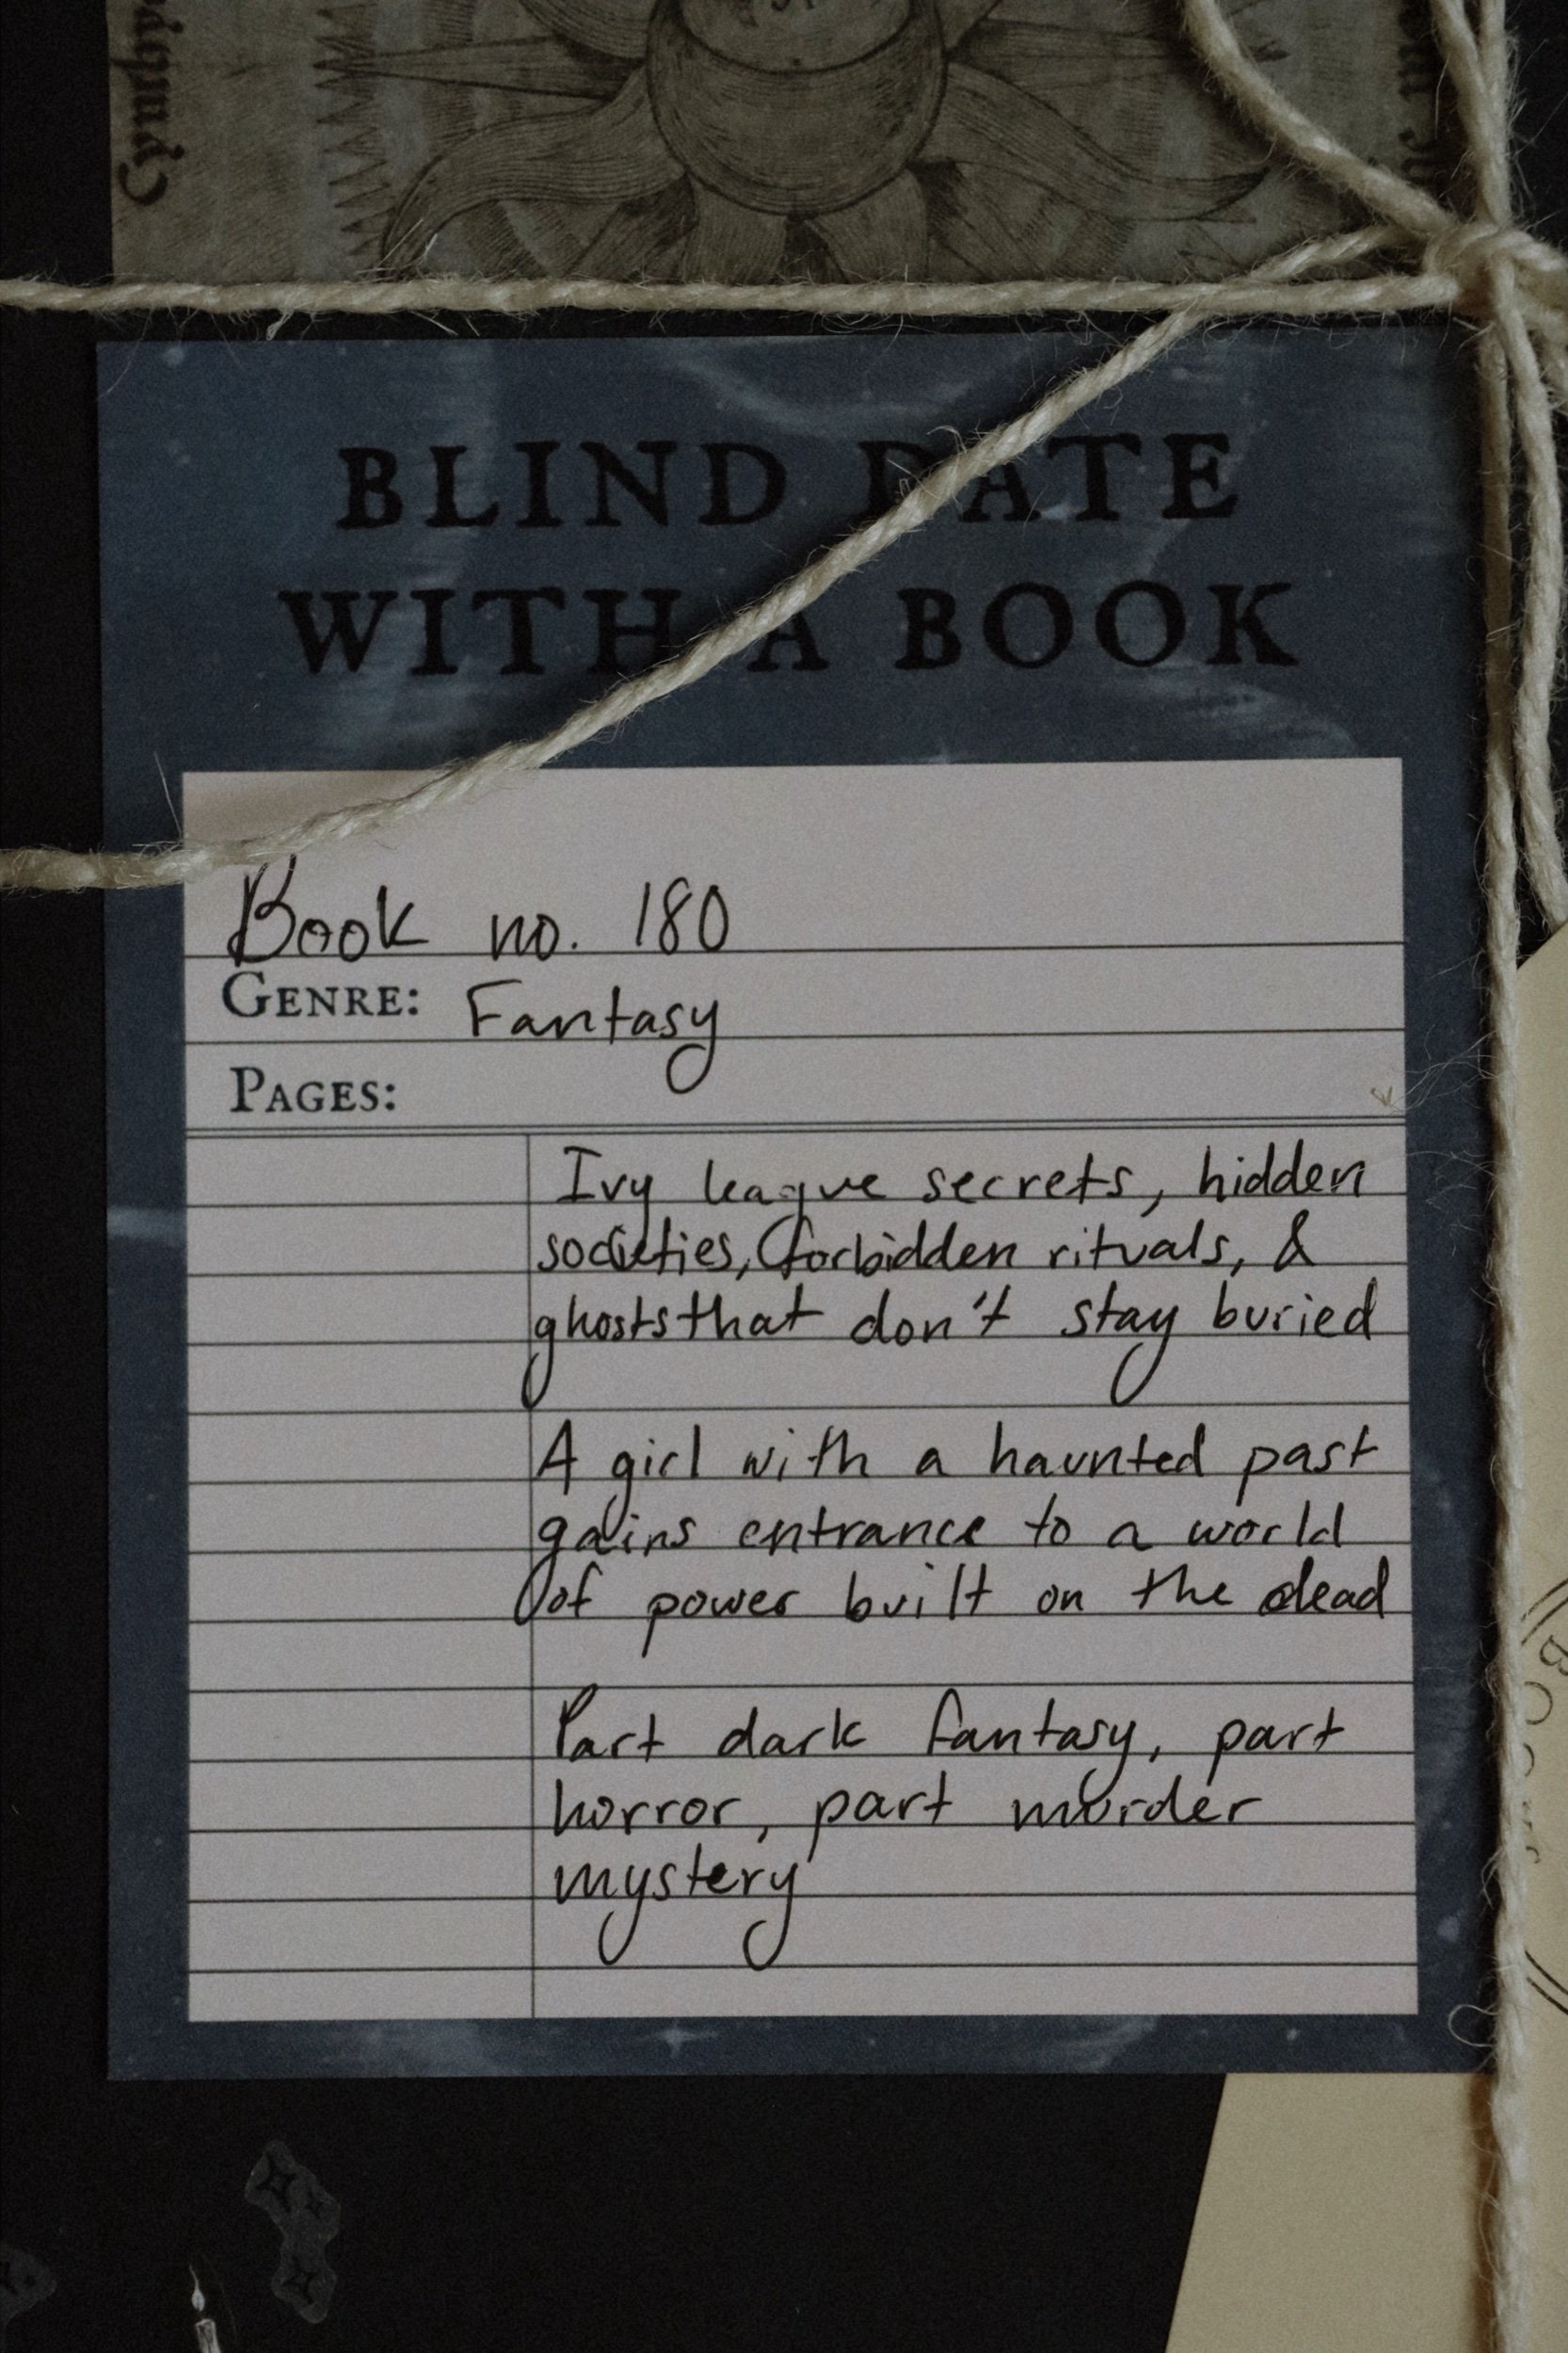 BLIND DATE
WITH A BOOK
Book no. 180
GENRE: Fantasy
PAGES:
Ivy league secrets, hidden
societies, forbidden rituals, &
ghosts that don't stay buried
A girl with a haunted past
gains entrance to a world
of power built on the dead
Part dark fantasy, part
horror, part murder
mystery